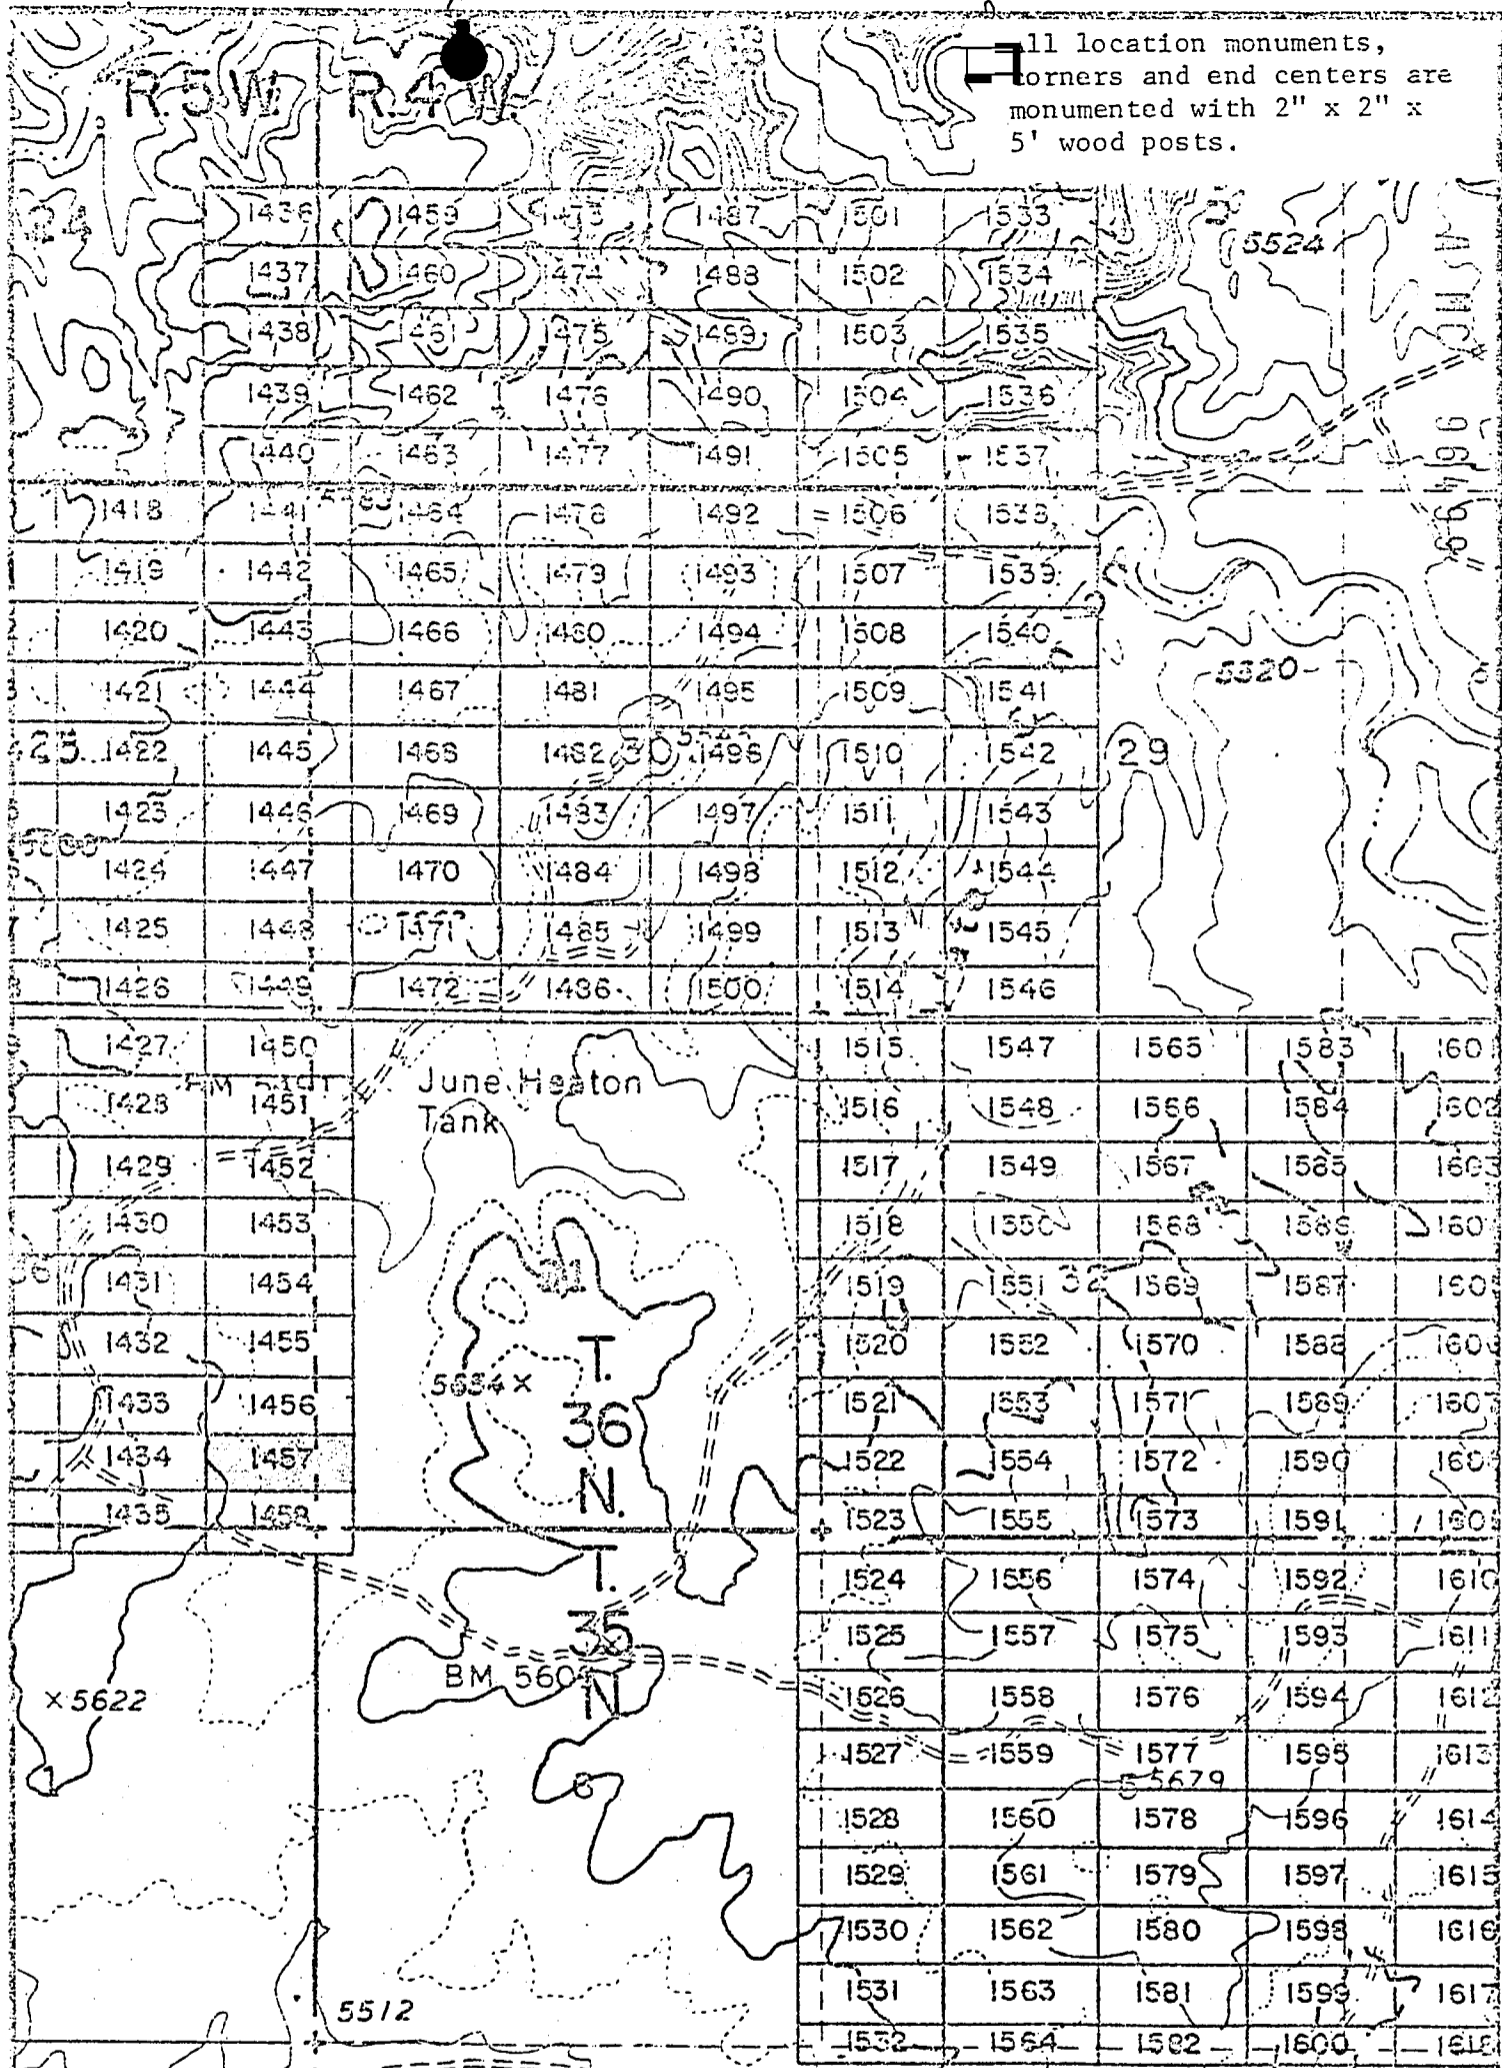 All location monuments,
corners and end centers are
monumented with 2" x 2" x
5' wood posts.
R.5W. R.4W.
1436 1459 1473 1487 1501 1533
5524
1437 1460 1474 1488 1502 1534
1438 1461 1475 1489 1503 1535
1439 1462 1476 1490 1504 1536
1440 1463 1477 1491 1505 1537
1418 1441 1464 1478 1492 1506 1538
1419 1442 1465 1479 1493 1507 1539
1420 1443 1466 1480 1494 1508 1540
1421 1444 1467 1481 1495 1509 1541
5320
1422 1445 1468 1482 30 1496 1510 1542 29
1423 1446 1469 1483 1497 1511 1543
1424 1447 1470 1484 1498 1512 1544
1425 1448 1471 1485 1499 1513 1545
1426 1449 1472 1486 1500 1514 1546
1427 1450 1515 1547 1565 1583 160
June Heaton
Tank
1428 1451 1516 1548 1566 1584 1602
1429 1452 1517 1549 1567 1585 1603
1430 1453 1518 1550 1568 1586 160
1431 1454 31 1519 1551 32 1569 1587 160
1432 1455 1520 1552 1570 1588 160
T.
36
N.
5634 X
1433 1456 1521 1553 1571 1589 1607
1434 1457 1522 1554 1572 1590 160
1435 1458 1523 1555 1573 1591 160
T.
35
N
1524 1556 1574 1592 1610
1525 1557 1575 1593 1611
BM 560
X 5622
1526 1558 1576 1594 1612
1527 1559 1577 1595 1613
6
5 5679
1528 1560 1578 1596 1614
1529 1561 1579 1597 1615
1530 1562 1580 1598 1616
1531 1563 1581 1599 1617
5512
1532 1564 1582 1600 1618